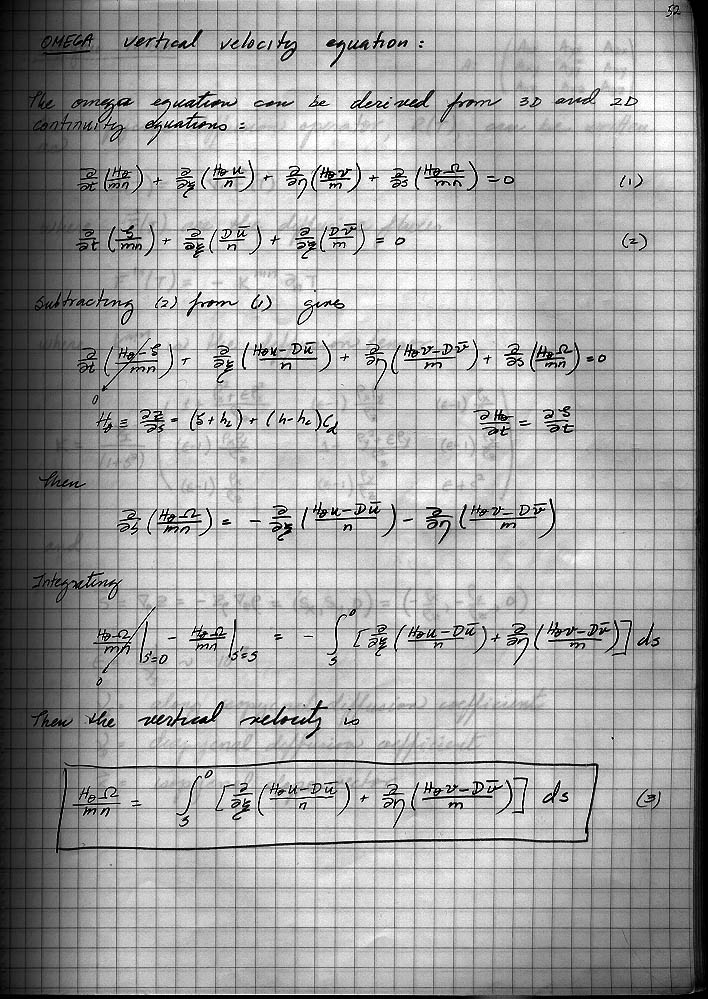 52
OMEGA vertical velocity equation:
The omega equation can be derived from 3D and 2D
continuity equations:
∂/∂t (Hz/mn) + ∂/∂ξ (Hz u/n) + ∂/∂η (Hz v/m) + ∂/∂s (Hz Ω/mn) = 0 (1)
∂/∂t (ζ/mn) + ∂/∂ξ (D ū/n) + ∂/∂ξ (D v̄/m) = 0 (2)
Subtracting (2) from (1) gives
∂/∂t (Hz - ζ/mn) + ∂/∂ξ (Hz u - D ū/n) + ∂/∂η (Hz v - D v̄/m) + ∂/∂s (Hz Ω/mn) = 0
0
Hz ≡ ∂z/∂s = (ζ + hc) + (h - hc) Cd ∂Hz/∂t = ∂ζ/∂t
Then
∂/∂s (Hz Ω/mn) = - ∂/∂ξ (Hz u - D ū/n) - ∂/∂η (Hz v - D v̄/m)
Integrating
Hz Ω/mn |s'=0 - Hz Ω/mn |s'=s = - ∫s0 [∂/∂ξ (Hz u - D ū/n) + ∂/∂η (Hz v - D v̄/m)] ds
0
Then the vertical velocity is
Hz Ω/mn = ∫s0 [∂/∂ξ (Hz u - D ū/n) + ∂/∂η (Hz v - D v̄/m)] ds (3)